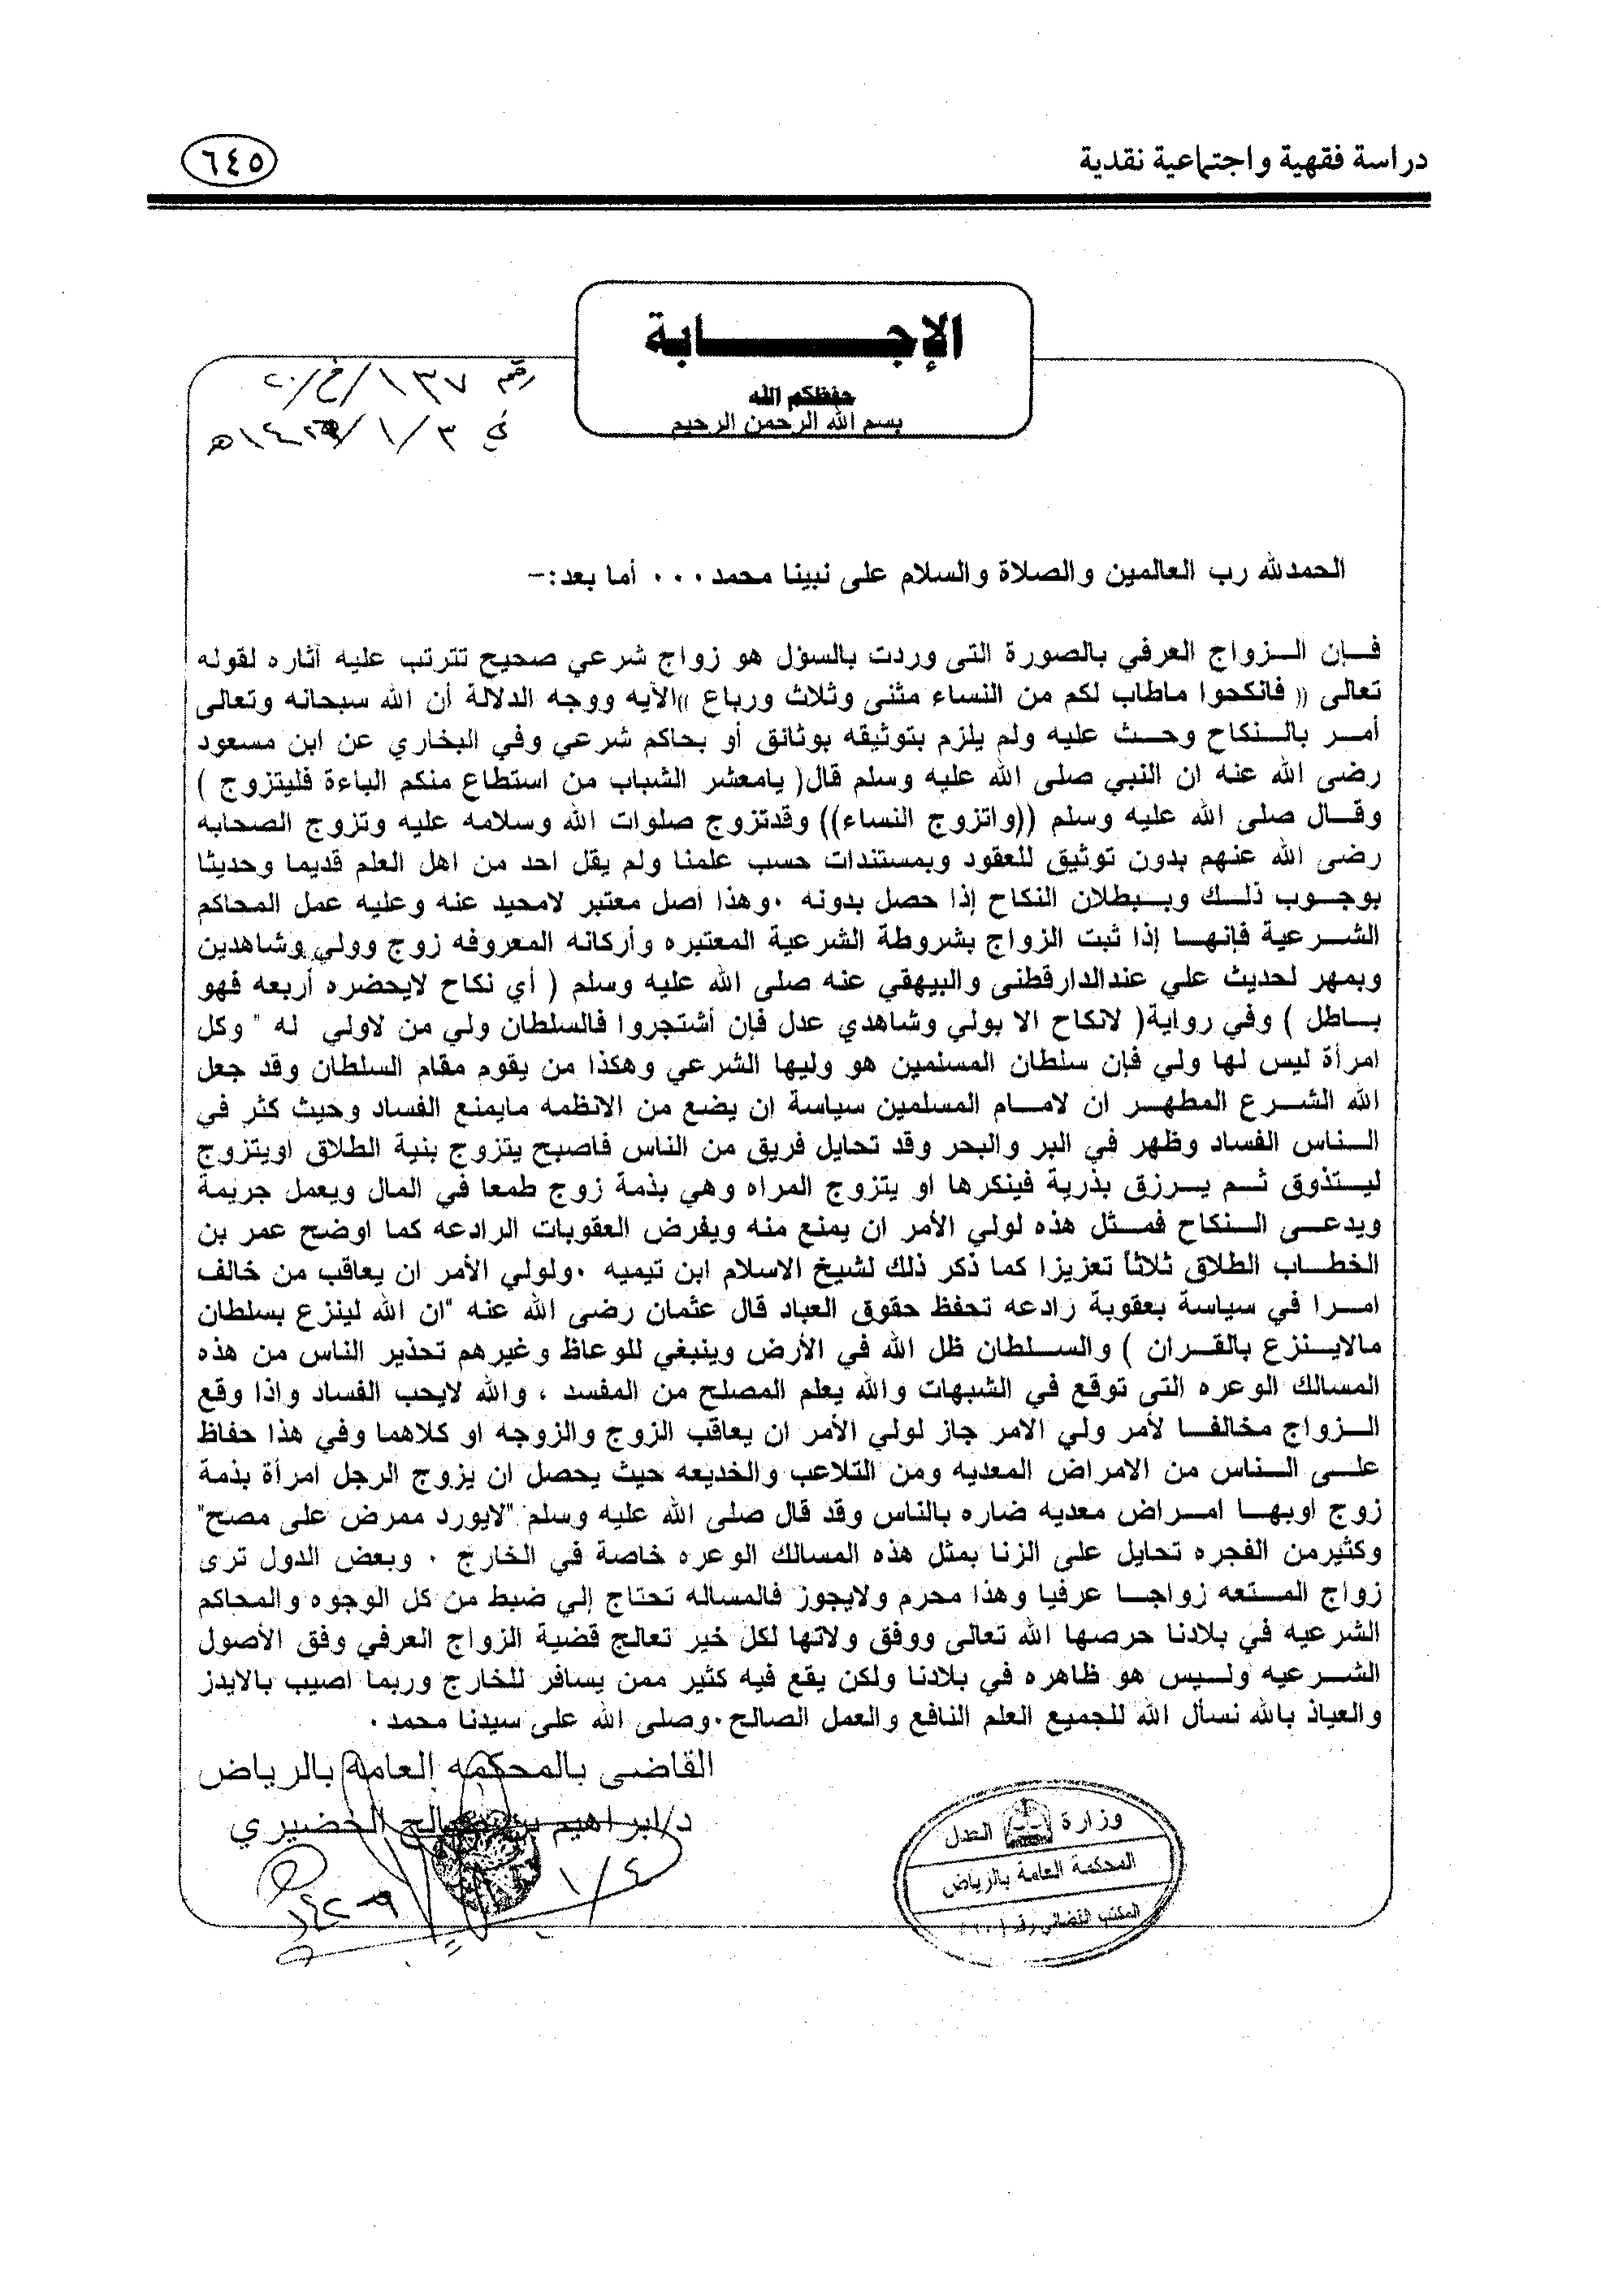 دراسة فقهية واجتماعية نقدية
٦٤٥
الإجـــــــابة
حفظكم الله
بسم الله الرحمن الرحيم
رقم ١٣٧/خ/٢٠
في ٣/١/١٤٢٩هـ
الحمدلله رب العالمين والصلاة والسلام على نبينا محمد ٠٠٠ أما بعد:-
فـإن الـزواج العرفي بالصورة التى وردت بالسؤل هو زواج شرعي صحيح تترتب عليه آثاره لقوله
تعالى (( فانكحوا ماطاب لكم من النساء مثنى وثلاث ورباع ))الآيه ووجه الدلالة أن الله سبحانه وتعالى
أمـر بالـنكاح وحـث عليه ولم يلزم بتوثيقه بوثائق أو بحاكم شرعي وفي البخاري عن ابن مسعود
رضى الله عنه ان النبي صلى الله عليه وسلم قال( يامعشر الشباب من استطاع منكم الباءة فليتزوج )
وقـال صلى الله عليه وسلم ((واتزوج النساء)) وقدتزوج صلوات الله وسلامه عليه وتزوج الصحابه
رضى الله عنهم بدون توثيق للعقود وبمستندات حسب علمنا ولم يقل احد من اهل العلم قديما وحديثا
بوجـوب ذلـك وبـبطلان النكاح إذا حصل بدونه ٠وهذا أصل معتبر لامحيد عنه وعليه عمل المحاكم
الشـرعية فإنهـا إذا ثبت الزواج بشروطة الشرعية المعتبره وأركانه المعروفه زوج وولي وشاهدين
وبمهر لحديث علي عندالدارقطنى والبيهقي عنه صلى الله عليه وسلم ( أي نكاح لايحضره أربعه فهو
بـاطل ) وفي رواية( لانكاح الا بولي وشاهدي عدل فإن أشتجروا فالسلطان ولي من لاولي له " وكل
امرأة ليس لها ولي فإن سلطان المسلمين هو وليها الشرعي وهكذا من يقوم مقام السلطان وقد جعل
الله الشـرع المطهـر ان لامـام المسلمين سياسة ان يضع من الانظمه مايمنع الفساد وحيث كثر في
الـناس الفساد وظهر في البر والبحر وقد تحايل فريق من الناس فاصبح يتزوج بنية الطلاق اويتزوج
ليـتذوق ثـم يـرزق بذرية فينكرها او يتزوج المراه وهي بذمة زوج طمعا في المال ويعمل جريمة
ويدعـى الـنكاح فمـثل هذه لولي الأمر ان يمنع منه ويفرض العقوبات الرادعه كما اوضح عمر بن
الخطـاب الطلاق ثلاثاً تعزيزا كما ذكر ذلك لشيخ الاسلام ابن تيميه ٠ولولي الأمر ان يعاقب من خالف
امـرا في سياسة بعقوبة رادعه تحفظ حقوق العباد قال عثمان رضى الله عنه "ان الله لينزع بسلطان
مالايـنزع بالقـران ) والسـلطان ظل الله في الأرض وينبغي للوعاظ وغيرهم تحذير الناس من هذه
المسالك الوعره التى توقع في الشبهات والله يعلم المصلح من المفسد ، والله لايحب الفساد واذا وقع
الـزواج مخالفـا لأمر ولي الامر جاز لولي الأمر ان يعاقب الزوج والزوجه او كلاهما وفي هذا حفاظ
علـى الـناس من الامراض المعديه ومن التلاعب والخديعه حيث يحصل ان يزوج الرجل امرأة بذمة
زوج اوبهـا امـراض معديه ضاره بالناس وقد قال صلى الله عليه وسلم "لايورد ممرض على مصح"
وكثيرمن الفجره تحايل على الزنا بمثل هذه المسالك الوعره خاصة في الخارج ٠ وبعض الدول ترى
زواج المـتعه زواجـا عرفيا وهذا محرم ولايجوز فالمساله تحتاج إلي ضبط من كل الوجوه والمحاكم
الشرعيه في بلادنا حرصها الله تعالى ووفق ولاتها لكل خير تعالج قضية الزواج العرفي وفق الأصول
الشـرعيه ولـيس هو ظاهره في بلادنا ولكن يقع فيه كثير ممن يسافر للخارج وربما اصيب بالايدز
والعياذ بالله نسأل الله للجميع العلم النافع والعمل الصالح٠وصلى الله على سيدنا محمد ٠
القاضى بالمحكمه العامه بالرياض
د/ابراهيم بن صالح الخضيري
١/٤
١٤٢٩
وزارة العدل
المحكمة العامة بالرياض
المكتب القضائي رقم